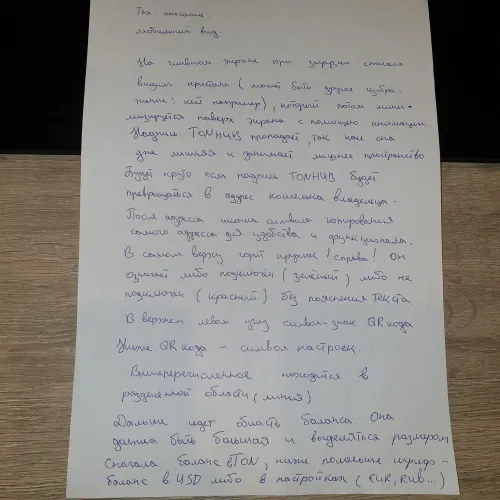 Тех. описание.
мобильный вид.
На главном экране при загрузки сначала
видим кристалл (может быть другое изобра-
жение! кит например), который потом мини-
мизируется наверх экрана с помощью анимации.
Надпись TONHUB пропадает, так как она
уже лишняя и занимает лишнее пространство
Будет круто если надпись TONHUB будет
превращаться в адрес кошелька владельца.
После адреса иконка символа копирования
самого адреса для удобства и функционала.
В самом верху горит кружок! справа! Он
означает либо подключен (зелёный) либо не
подключен (красный) без пояснения текста
В верхнем левом углу символ-знак QR кода
Ниже QR кода - символ настроек.
Вышеперечисленное находится в
разделенной области (линия)
Дальше идет область баланса. Она
должна быть большая и выделяться размером
Сначала баланс в TON, ниже поменьше
баланс в USD либо в настройках (EUR, RUB...)